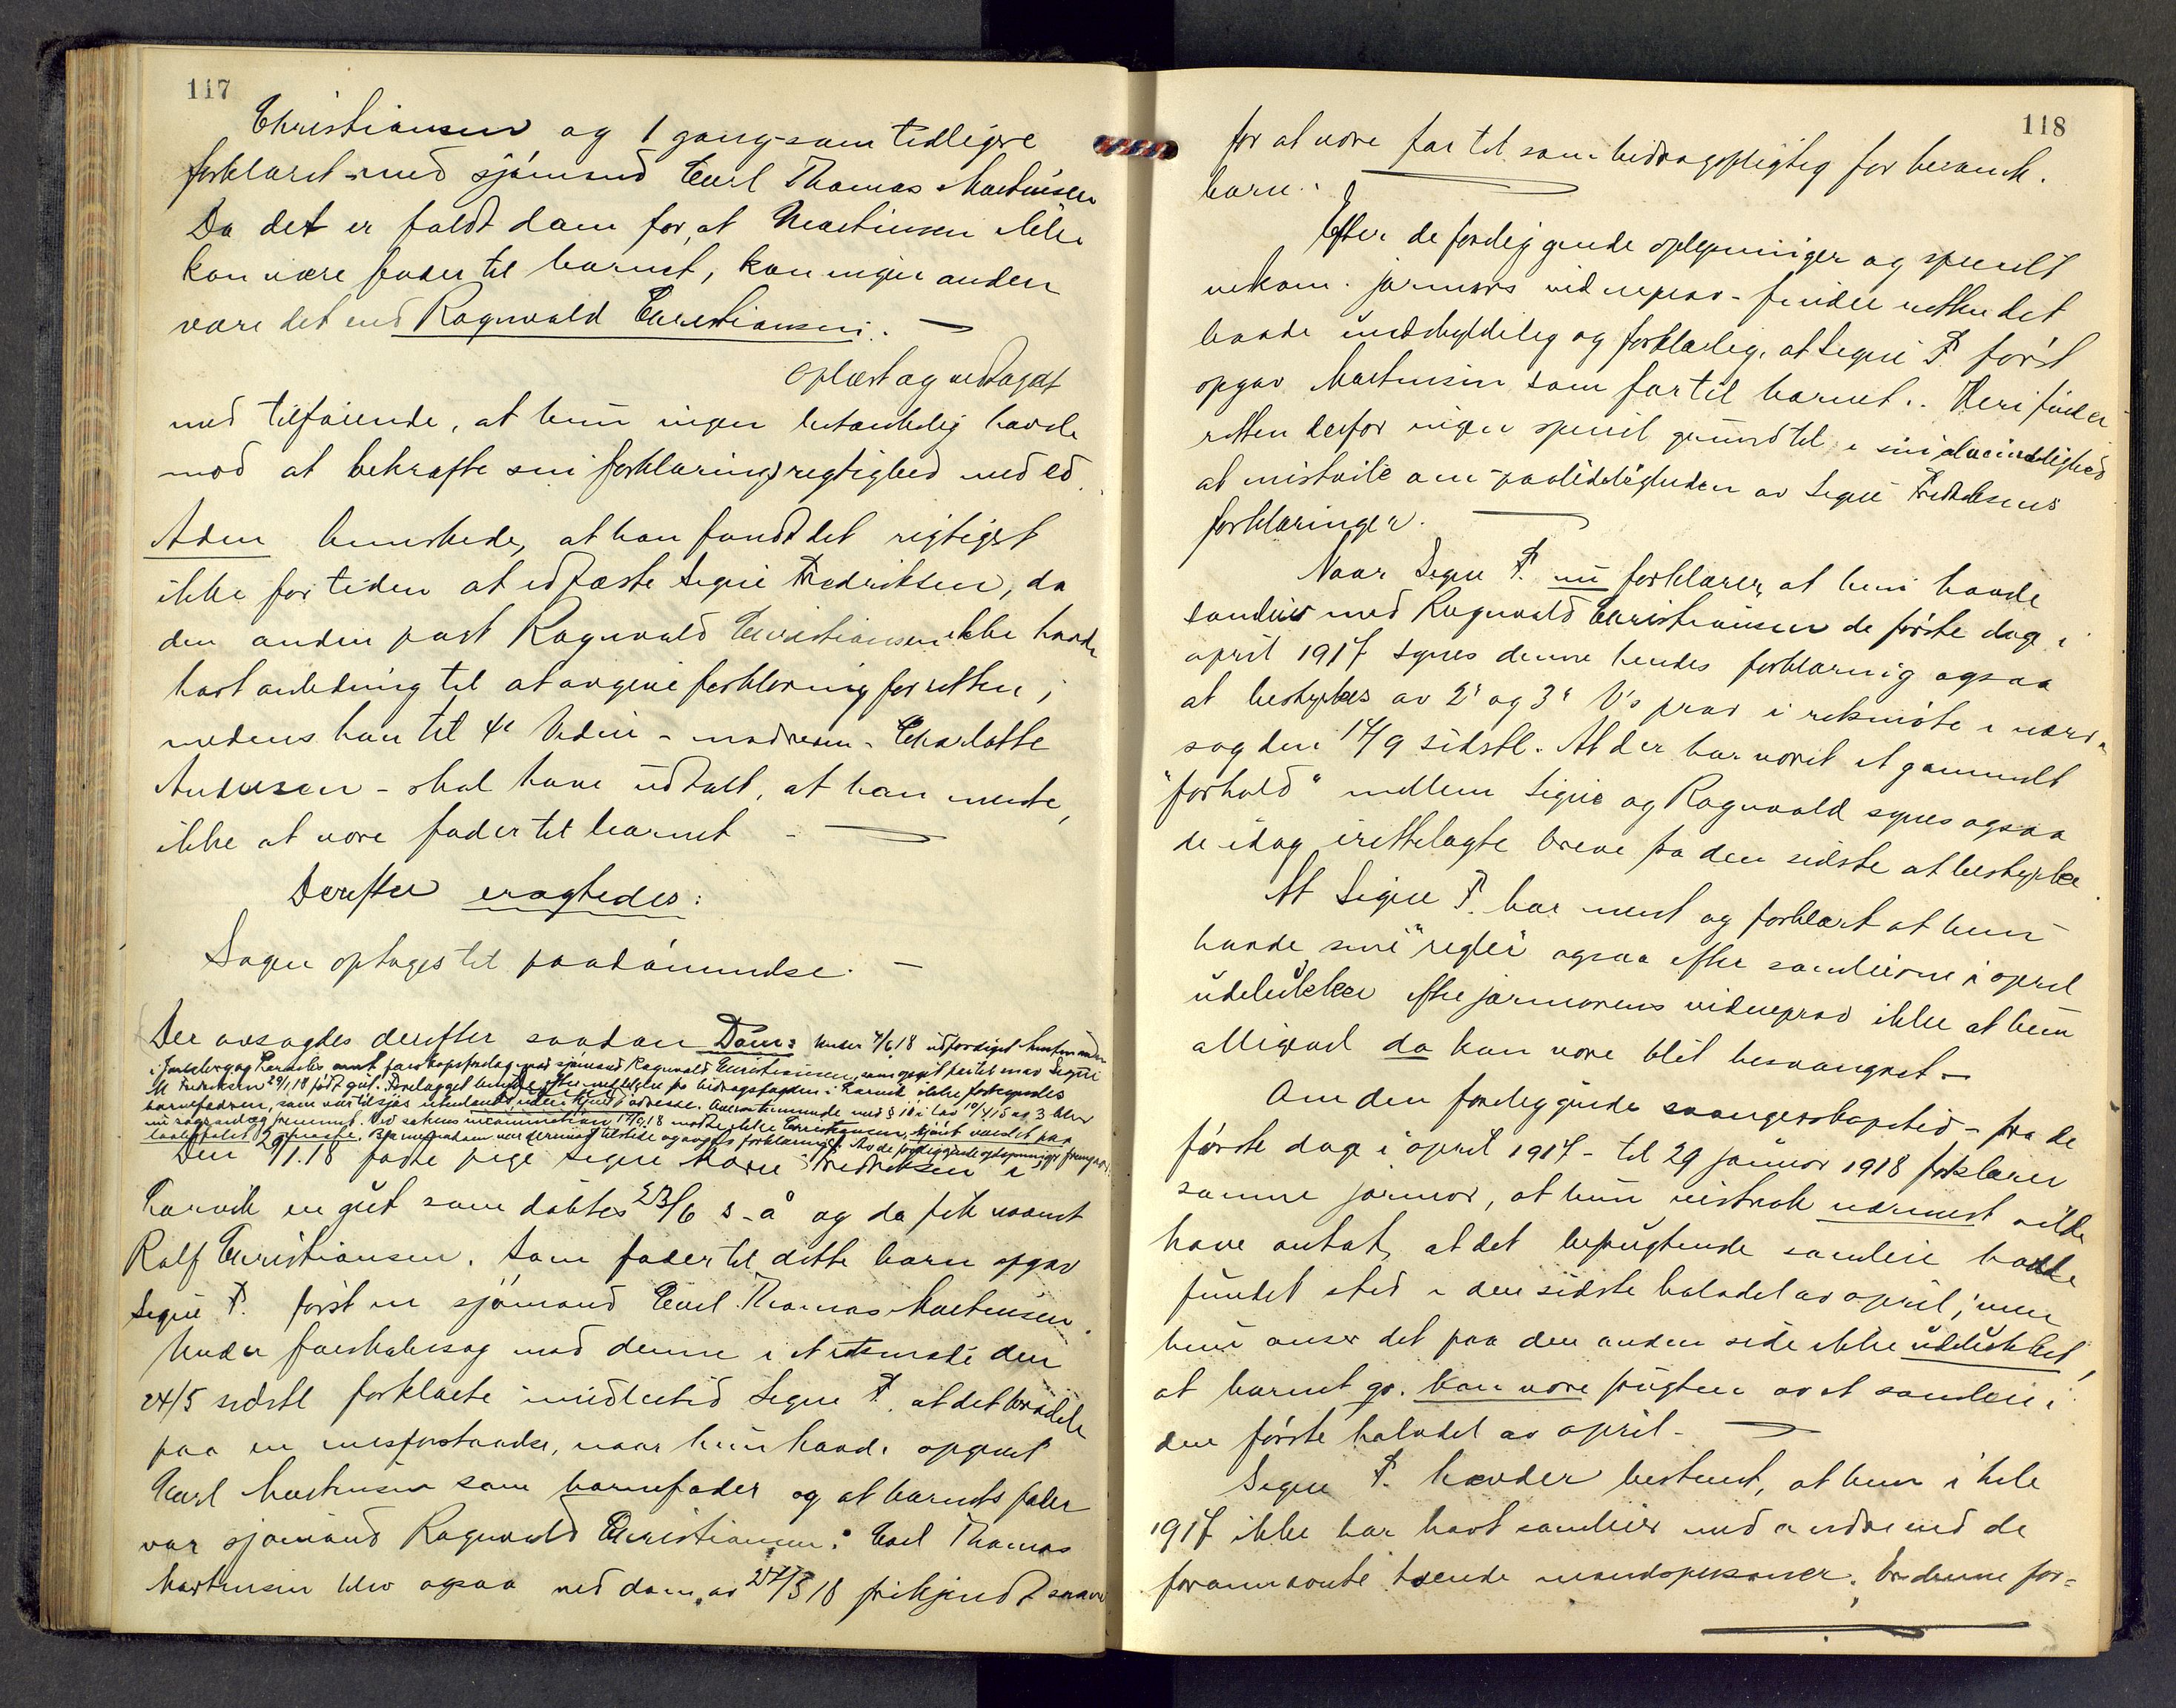 117
Christiansen og 1 gang som tidligere
forklaret - med sjømand Carl Thomas Martinsen
Da det er faldt dom for, at Martinsen ikke
kan være fader til barnet, kan ingen anden
være det end Ragnvald Christiansen. —
Oplæst og vedtaget
med tilføiende, at hun ingen betænkelig havde
mod at bekræfte sin forklarings rigtighed med ed.
Adm bemerkede, at han fandt det rigtigst
ikke for tiden at edfæste Signe Fredriksen, da
den anden part Ragnvald Christiansen ikke havde
havt anledning til at avgive forklaring for retten;
medens han til 4e Vidne - madam - Charlotte
Andersen - skal have uttalt, at han mente,
ikke at være fader til barnet - —
Derefter eragtedes:
Sagen optages til paadømmelse. —
Der avsagdes derefter saadan Dom: Under 4/6 18 utfærdiget
sjømand Ragnvald Christiansen, som opgit far til en av Signe
M Fredriksen 29/1.18 født gut.
barnefadren, som var tilsjøs utenlands uten kjendt adresse. Overensstemmende med § 18 i lov 10/4 15 er 3 blev
Den 29/1.18 fødte pige Signe Marie Fredriksen i
Larvik en gut som døbtes 23/6 s. å og da fik navnet
Ralf Christiansen. Som fader til dette barn opgav
Signe F. først en sjømand Carl Thomas Martinsen.
Under farskabssag mod denne i et retsmøte den
24/5 sidstl forklarte imidlertid Signe F. at det berodde
paa en misforstaaelse, naar hun havde opgivet
Carl Martinsen som barnefader og at barnets fader
var sjømand Ragnvald Christiansen. Carl Thomas
Martinsen blev ogsaa ved dom av 27/5 18 frikjendt
118
for at være far til som bidragspligtig for
barn.
Efter de foreliggende oplysninger og specielt
jormors vidneprov - finder retten det
baade undskyldelig og forklarlig, at Signe F. først
opgav Martinsen som far til barnet. Heri finder
retten derfor ingen speciel grund til i sin almindelighed
at mistvile om paalideligheden av Signe Fredriksens
forklaringer. —
Naar Signe F. nu forklarer, at hun havde
samleie med Ragnvald Christiansen de første dage i
april 1917 synes denne hendes forklaring ogsaa
at bestyrkes av 2' og 3' V's prov i retsmøte i nærv.
sag den 17/9 sidstl. At der har været et gammelt
"forhold" mellem Signe og Ragnvald synes ogsaa
de idag irettelagte breve fra den sidste at bestyrke
At Signe F. har ment og forklart at hun
havde sine "regler" ogsaa efter samleierne i april
udelukker efter jormorens vidneprov ikke at hun
alligevel da kan være blit besvangret —
Om den foreliggende svangerskapstid - fra de
første dage i april 1917 - til 29 januar 1918 forklarer
samme jormor, at hun vistnok nærmest vilde
have antat, at det befrugtende samleie hadde
fundet sted i den sidste halvdel av april; men
hun anser det paa den anden side ikke udelukket,
at barnet kan være frugten av et samleie i
den første halvdel av april - —
Signe F. hævder bestemt, at hun i hele
1917 ikke har havt samleier med andre end de
forannævnte tvende mandspersoner. Er denne for-